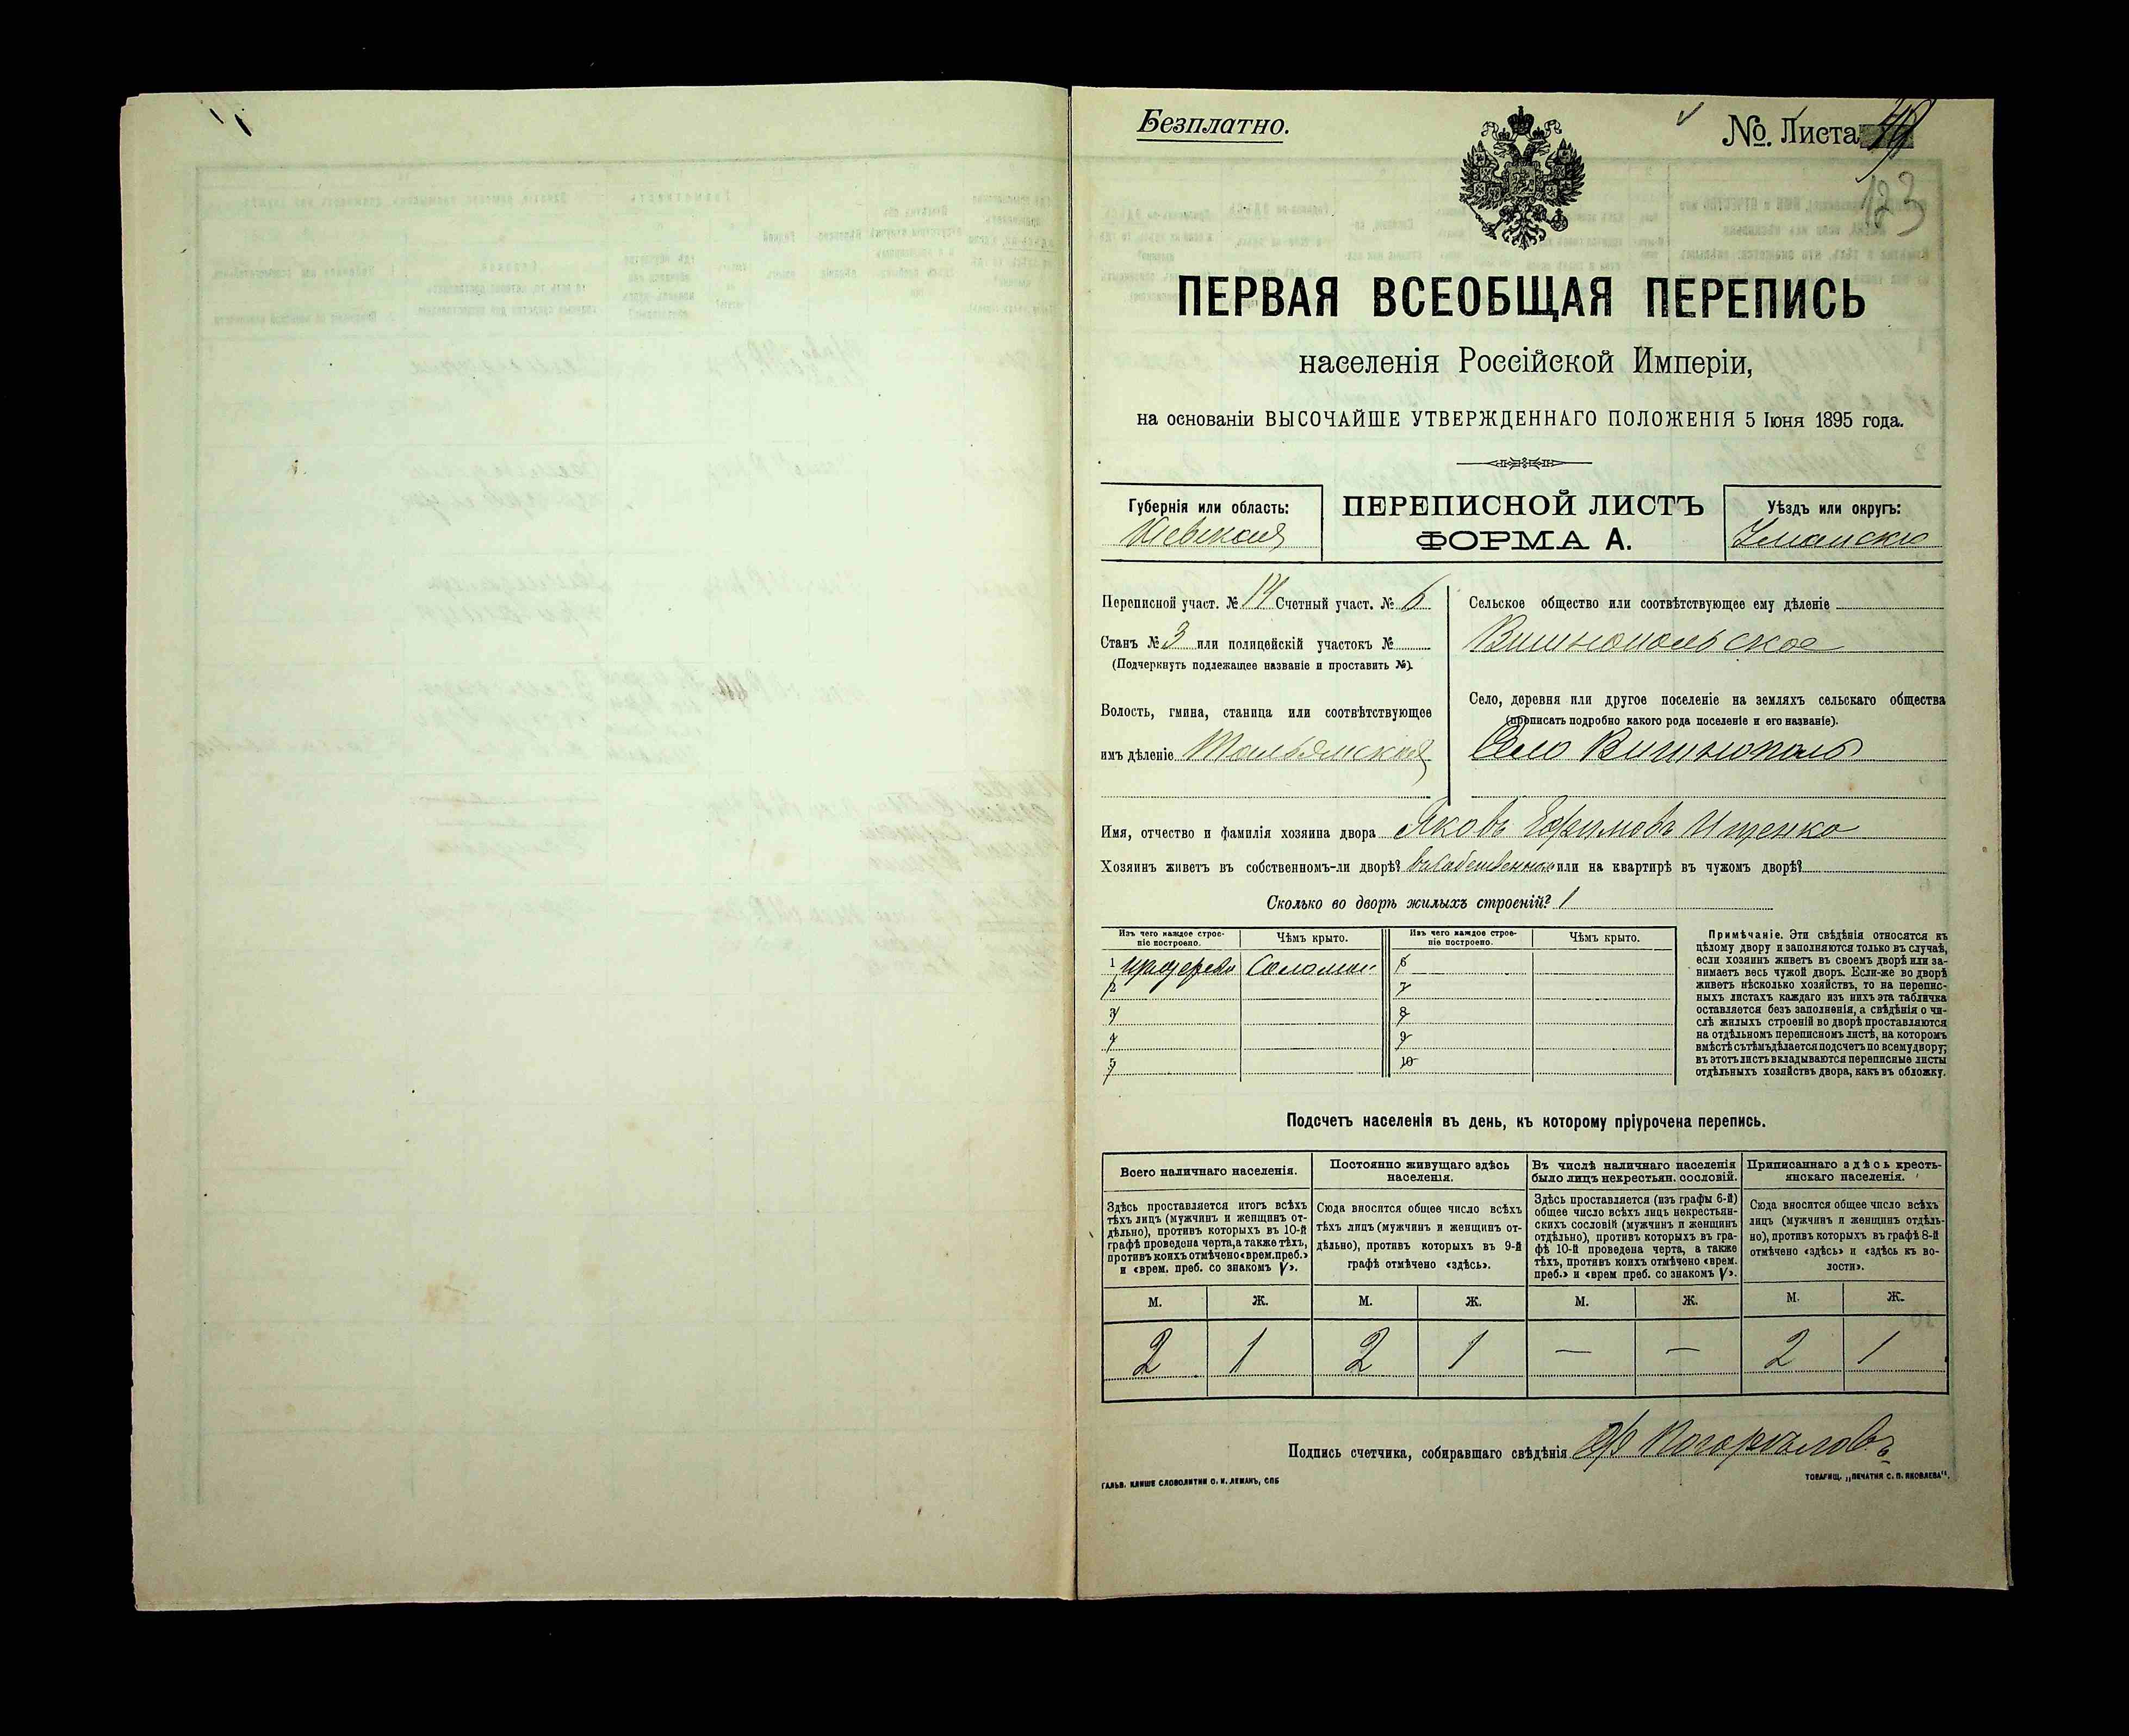 Безплатно.
№ Листа
123
ПЕРВАЯ ВСЕОБЩАЯ ПЕРЕПИСЬ
населенія Россійской Имперіи,
на основаніи ВЫСОЧАЙШЕ УТВЕРЖДЕННАГО ПОЛОЖЕНІЯ 5 Іюня 1895 года.
Губернія или область:
Кіевская
ПЕРЕПИСНОЙ ЛИСТЪ
ФОРМА А.
Уѣздъ или округъ:
Уманскій
Переписной участ. № 14 Счетный участ. № 6
Станъ № 3 или полицейскій участокъ №
(Подчеркнуть подлежащее названіе и проставить №).
Волость, гмина, станица или соотвѣтствующее
имъ дѣленіе Тальянская
Сельское общество или соотвѣтствующее ему дѣленіе
Вишнопольское
Село, деревня или другое поселеніе на земляхъ сельскаго общества
(прописать подробно какого рода поселеніе и его названіе).
Село Вишнополь
Имя, отчество и фамилія хозяина двора Яковъ Ефимовъ Ищенко
Хозяинъ живетъ въ собственномъ-ли дворѣ? въ собственномъ или на квартирѣ въ чужомъ дворѣ?
Сколько во дворѣ жилыхъ строеній? 1
Изъ чего каждое строе-
ніе построено.
Чѣмъ крыто.
Изъ чего каждое строе-
ніе построено.
Чѣмъ крыто.
1 Соломы 6
2 7
3 8
4 9
5 10
Примѣчаніе. Эти свѣдѣнія относятся къ
цѣлому двору и заполняются только въ случаѣ,
если хозяинъ живетъ въ своемъ дворѣ или за-
нимаетъ весь чужой дворъ. Если-же во дворѣ
живетъ нѣсколько хозяйствъ, то на перепис-
ныхъ листахъ каждаго изъ нихъ эта табличка
оставляется безъ заполненія, а свѣдѣнія о чи-
слѣ жилыхъ строеній во дворѣ проставляются
на отдѣльномъ переписномъ листѣ, на которомъ
вмѣстѣ съ тѣмъ дѣлается подсчетъ по всему двору;
въ этотъ листъ вкладываются переписные листы
отдѣльныхъ хозяйствъ двора, какъ въ обложку.
Подсчетъ населенія въ день, къ которому пріурочена перепись.
Всего наличнаго населенія.
Здѣсь проставляется итогъ всѣхъ
тѣхъ лицъ (мужчинъ и женщинъ от-
дѣльно), противъ которыхъ въ 10-й
графѣ проведена черта, а также тѣхъ,
противъ коихъ отмѣчено «врем. преб.»
и «врем. преб. со знакомъ V».
Постоянно живущаго здѣсь
населенія.
Сюда вносится общее число всѣхъ
тѣхъ лицъ (мужчинъ и женщинъ от-
дѣльно), противъ которыхъ въ 9-й
графѣ отмѣчено «здѣсь».
Въ числѣ наличнаго населенія
было лицъ некрестьян. сословій.
Здѣсь проставляется (изъ графы 6-й)
общее число всѣхъ лицъ некрестьян-
скихъ сословій (мужчинъ и женщинъ
отдѣльно), противъ которыхъ въ гра-
фѣ 10-й проведена черта, а также
тѣхъ, противъ коихъ отмѣчено «врем.
преб.» и «врем преб. со знакомъ V».
Приписаннаго здѣсь кресть-
янскаго населенія.
Сюда вносится общее число всѣхъ
лицъ (мужчинъ и женщинъ отдѣль-
но), противъ которыхъ въ графѣ 8-й
отмѣчено «здѣсь» и «здѣсь въ во-
лости».
М. Ж. М. Ж. М. Ж. М. Ж.
2 1 2 1 — — 2 1
Подпись счетчика, собиравшаго свѣдѣнія
ГАЛЬВ. КЛИШЕ СЛОВОЛИТНИ О. И. ЛЕМАНЪ, СПБ
ТОВАРИЩ. „ПЕЧАТНЯ С. П. ЯКОВЛЕВА".